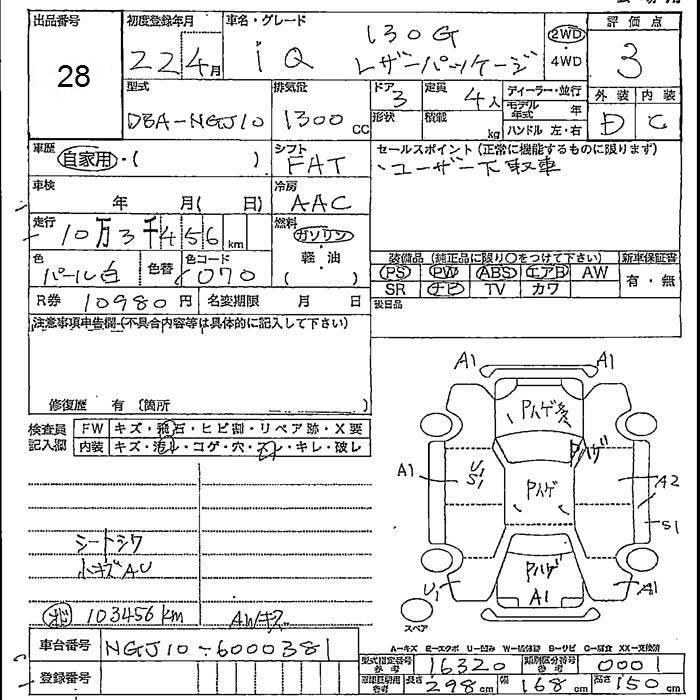 出品番号 初度登録年月 車名・グレード 評価点
28
22 4月 iQ 130G レザーパッケージ 2WD ・ 4WD 3
型式 排気量 ドア 定員 ディーラー・並行 外装 内装
DBA-NGJ10 1300CC 3 4人 モデル年式 年 D C
形状 積載 kg ハンドル 左・右
車歴 シフト セールスポイント (正常に機能するものに限ります)
自家用・( ) FAT ユーザー下取車
車検 年 月( 日) 冷房 AAC
走行 10万3千456km 燃料
ガソリン・軽・油
( )
色 パール白 色替 色コード 070
装備品 (純正品に限り○をつけて下さい) 新車保証書
PS PW ABS エアB AW 有・無
SR ナビ TV カワ
R券 10980円 名変期限 月 日 後日品
注意事項申告欄 (不具合内容等は具体的に記入して下さい)
修復歴 有 (箇所 )
検査員記入欄 FW キズ・飛石・ヒビ割・リペア跡・X要
内装 キズ・汚レ・コゲ・穴・スレ・キレ・破レ
A1 A1
Pハゲ多
Pハゲ
A1 U1 S1 Pハゲ A2
S1
Pハゲ
U1 A1 A1
スペア
シートシワ
小キズAU
103456km AWキズ
A-キズ E-エクボ U-凹み W-補修跡 B-サビ C-腐食 XX-交換済
車台番号 NGJ10-6000381
型式指定番号 参考 16320 類別区分番号 参考 0001
登録番号
参考 長さ 298cm 幅 168cm 高さ 150cm